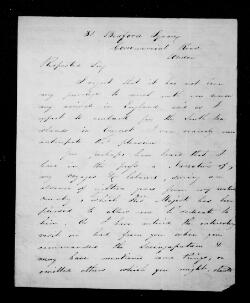 31 Bedford Square
Commercial Road
London
Respected Sir
I regret that it has not been
my privilege to meet with you since
my arrival in England and as I
expect to embark for the South Sea
Islands in August I can scarcely now
anticipate the pleasure
You perhaps have heard that I
have in the press a Narrative of
my voyages & labours, during an
absence of eighteen years from my native
country, which this Majesty has been
pleased to allow me to dedicate to
him. As I have noticed the
visit we had from you when you
commanded the &
may have mentioned some things, or
omitted others which you might